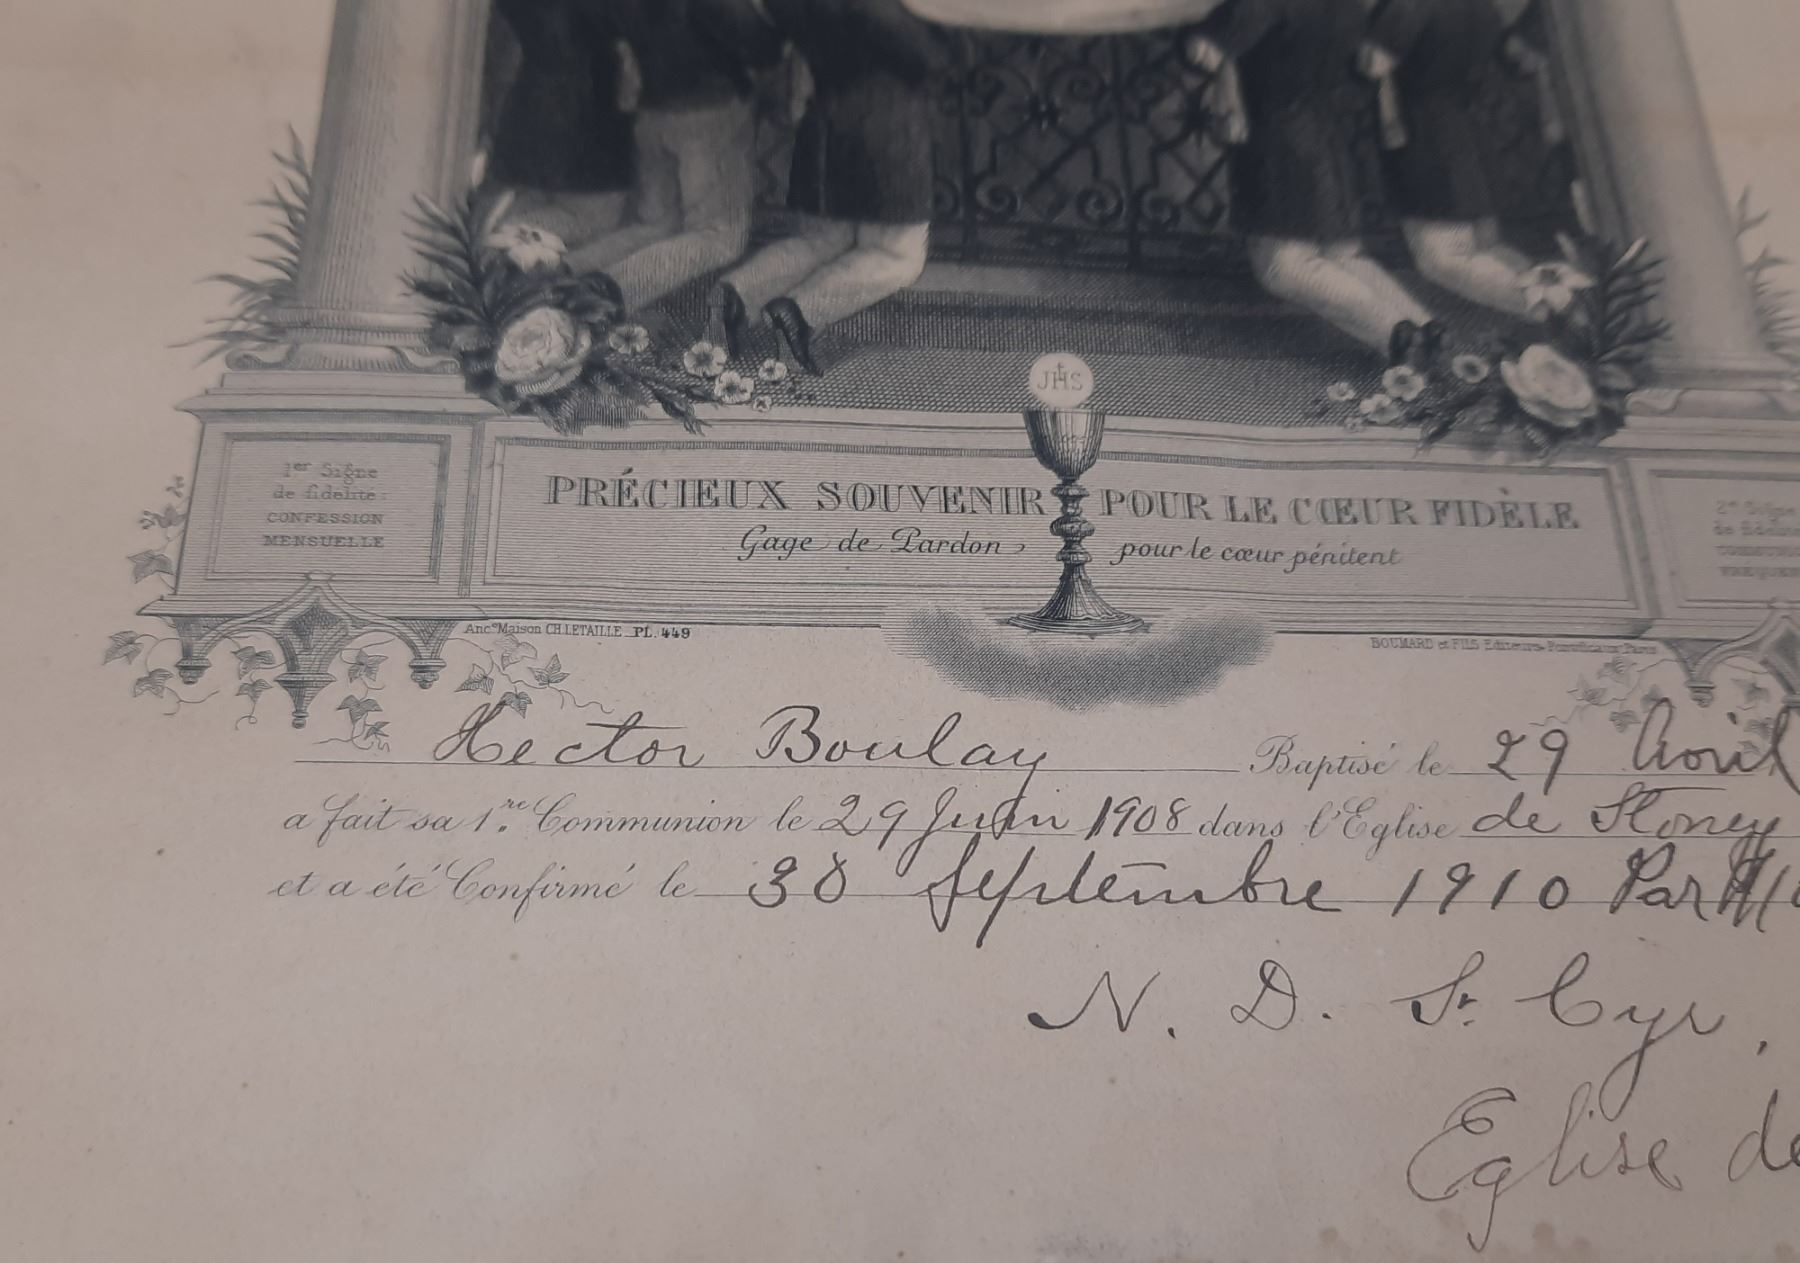 JHS
1er Signe
de fidelité :
CONFESSION
MENSUELLE
PRÉCIEUX SOUVENIR POUR LE CŒUR FIDÈLE
Gage de Pardon, pour le cœur pénitent
2e Signe
Ancne Maison CH. LETAILLE PL. 449
BOUMARD et FILS Editeurs Pontificaux Paris
Hector Boulay Baptisé le 29 Avril
a fait sa 1re Communion le 29 Juin 1908 dans l'Eglise de Stoney
et a été Confirmé le 30 Septembre 1910 Par
N. D. St. Cyr,
Eglise de